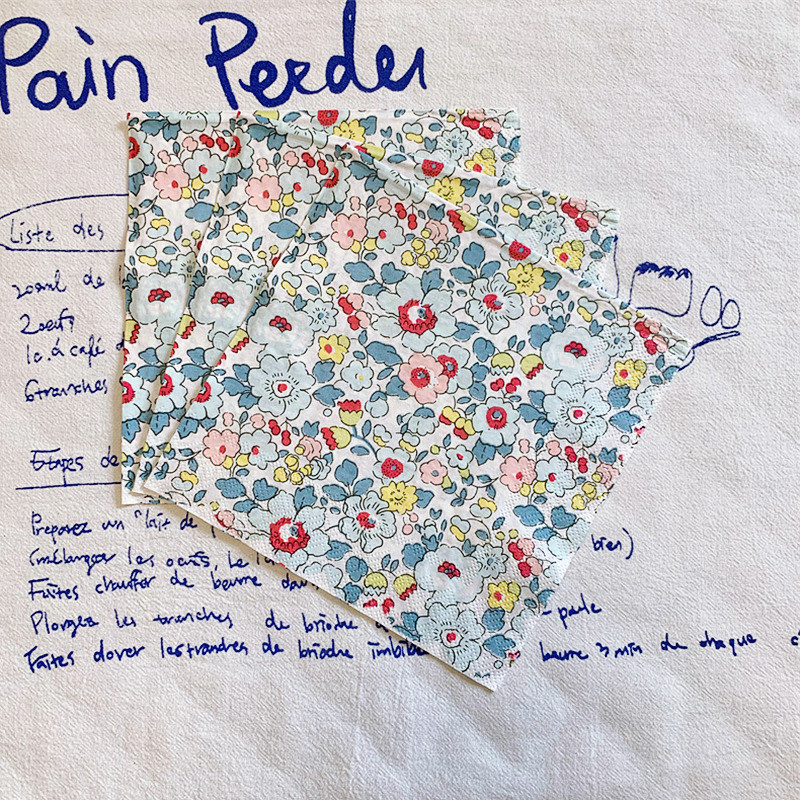 Pain Perdu
Liste des
20ml de
2 oeufs
1c. à café
6 tranches
Etapes de
Preparez un "lait de
(mélanger les oeufs, le
bien)
Faites chauffer de beurre dans
Plongez les tranches de brioche
Faites dorer les tranches de brioche imbibé
beurre 3 min de chaque